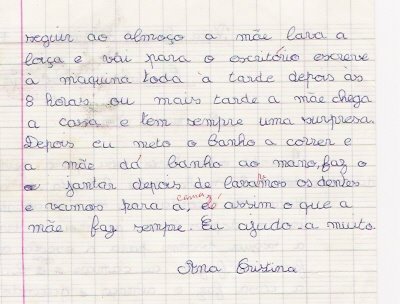 seguir ao almoço a mãe lava a
loiça e vai para o escritório escreve
à maquina toda à tarde depois às
8 horas ou mais tarde a mãe chega
a cassa e tem sempre uma surpresa.
Depois eu meto o banho a correr e
a mãe dá banho ao mano, faz o
jantar depois de lavarmos os dentes
e vamos para a cama, é assim o que a
mãe faz sempre. Eu ajudo-a muito.
Ana Cristina